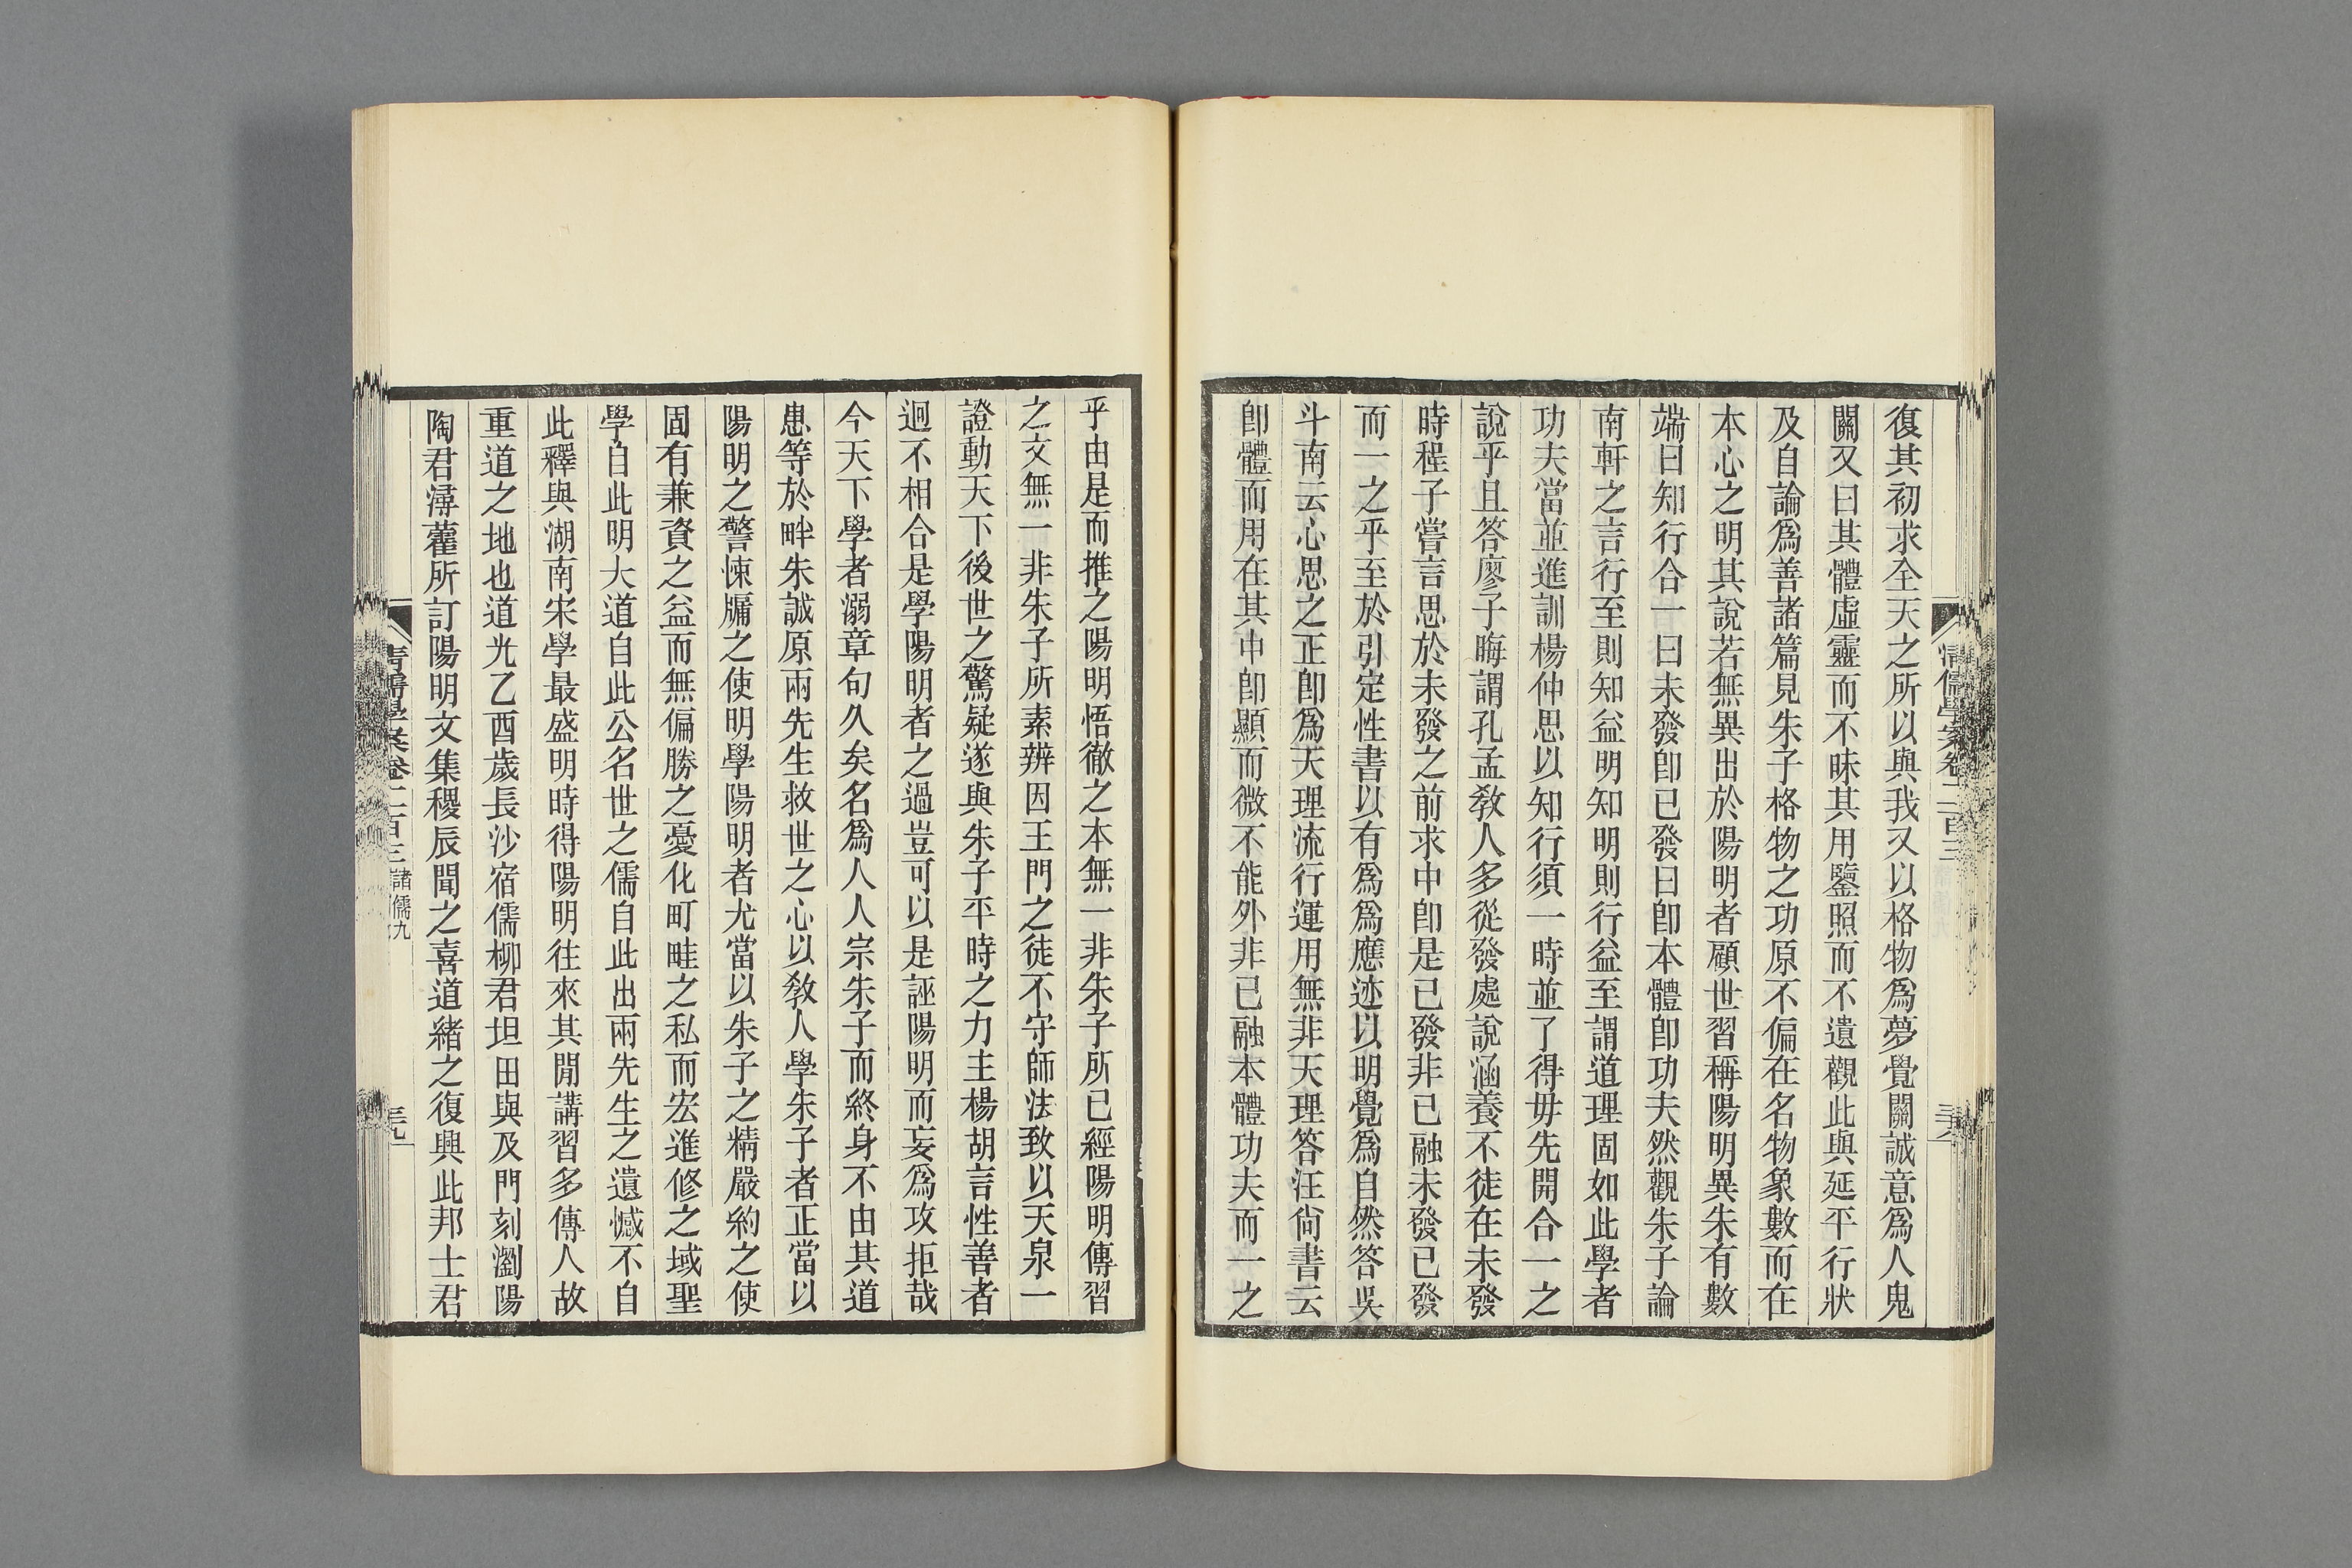 復其初求全天之所以與我又以格物爲夢覺關誠意爲人鬼
關又曰其體虛靈而不昧其用鑒照而不遺觀此與延平行狀
及自論爲善諸篇見朱子格物之功原不偏在名物象數而在
本心之明其說若無異出於陽明者顧世習稱陽明異朱有數
端曰知行合一曰未發卽已發曰卽本體卽功夫然觀朱子論
南軒之言行至則知益明知明則行益至謂道理固如此學者
功夫當並進訓楊仲思以知行須一時並了得毋先開合一之
說乎且答廖子晦謂孔孟敎人多從發處說涵養不徒在未發
時程子嘗言思於未發之前求中卽是已發非已融未發已發
而一之乎至於引定性書以有爲爲應迹以明覺爲自然答吳
斗南云心思之正卽爲天理流行運用無非天理答汪尙書云
卽體而用在其中卽顯而微不能外非已融本體功夫而一之
清儒學案卷二百三
三八
乎由是而推之陽明悟徹之本無一非朱子所已經陽明傳習
之文無一非朱子所素辨因王門之徒不守師法致以天泉一
證動天下後世之驚疑遂與朱子平時之力主楊胡言性善者
迥不相合是學陽明者之過豈可以是誣陽明而妄爲攻拒哉
今天下學者溺章句久矣名爲人人宗朱子而終身不由其道
患等於畔朱誠原兩先生救世之心以敎人學朱子者正當以
陽明之警悚牖之使明學陽明者尤當以朱子之精嚴約之使
固有兼資之益而無偏勝之憂化町畦之私而宏進修之域聖
學自此明大道自此公名世之儒自此出兩先生之遺憾不自
此釋與湖南宋學最盛明時得陽明往來其閒講習多傳人故
重道之地也道光乙酉歲長沙宿儒柳君坦田與及門刻瀏陽
陶君潯蘿所訂陽明文集稷辰聞之喜道緒之復興此邦士君
清儒學案卷二百三
諸儒九
三九